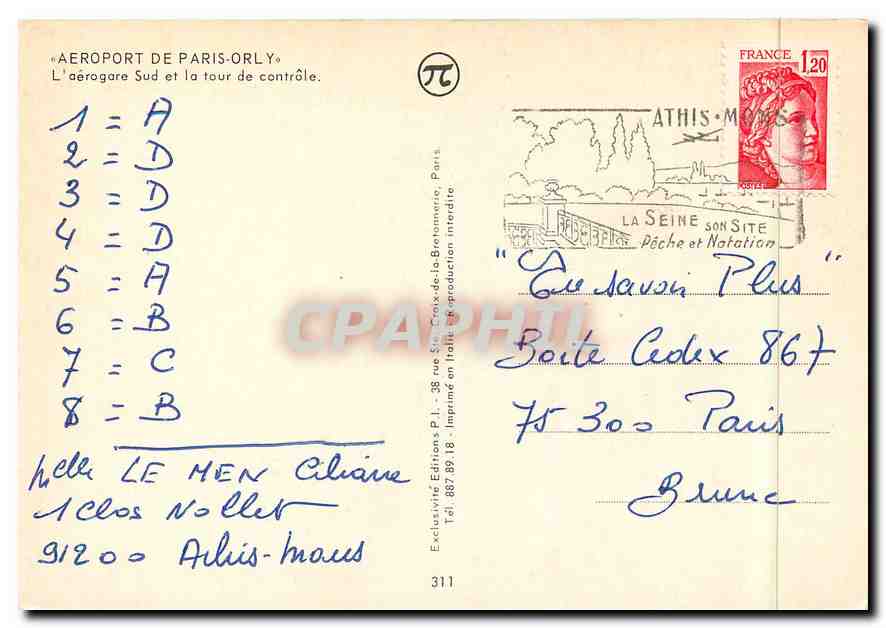 «AEROPORT DE PARIS-ORLY»
L'aérogare Sud et la tour de contrôle.
1 = A
2 = D
3 = D
4 = D
5 = A
6 = B
7 = C
8 = B
Melle LE MEN Liliane
1 Clos Nollet
91200 Athis-Mons
Exclusivité Editions P.I. - 38 rue Ste Croix-de-la-Bretonnerie, Paris
Tél. 887.89.18 - Imprimé en Italie - Reproduction interdite
311
π
FRANCE
1,20
ATHIS-MONS
LA SEINE SON SITE
Pêche et Natation
"En savoir Plus"
Boite Cedex 867
75300 Paris
Brune
CPAPHIL